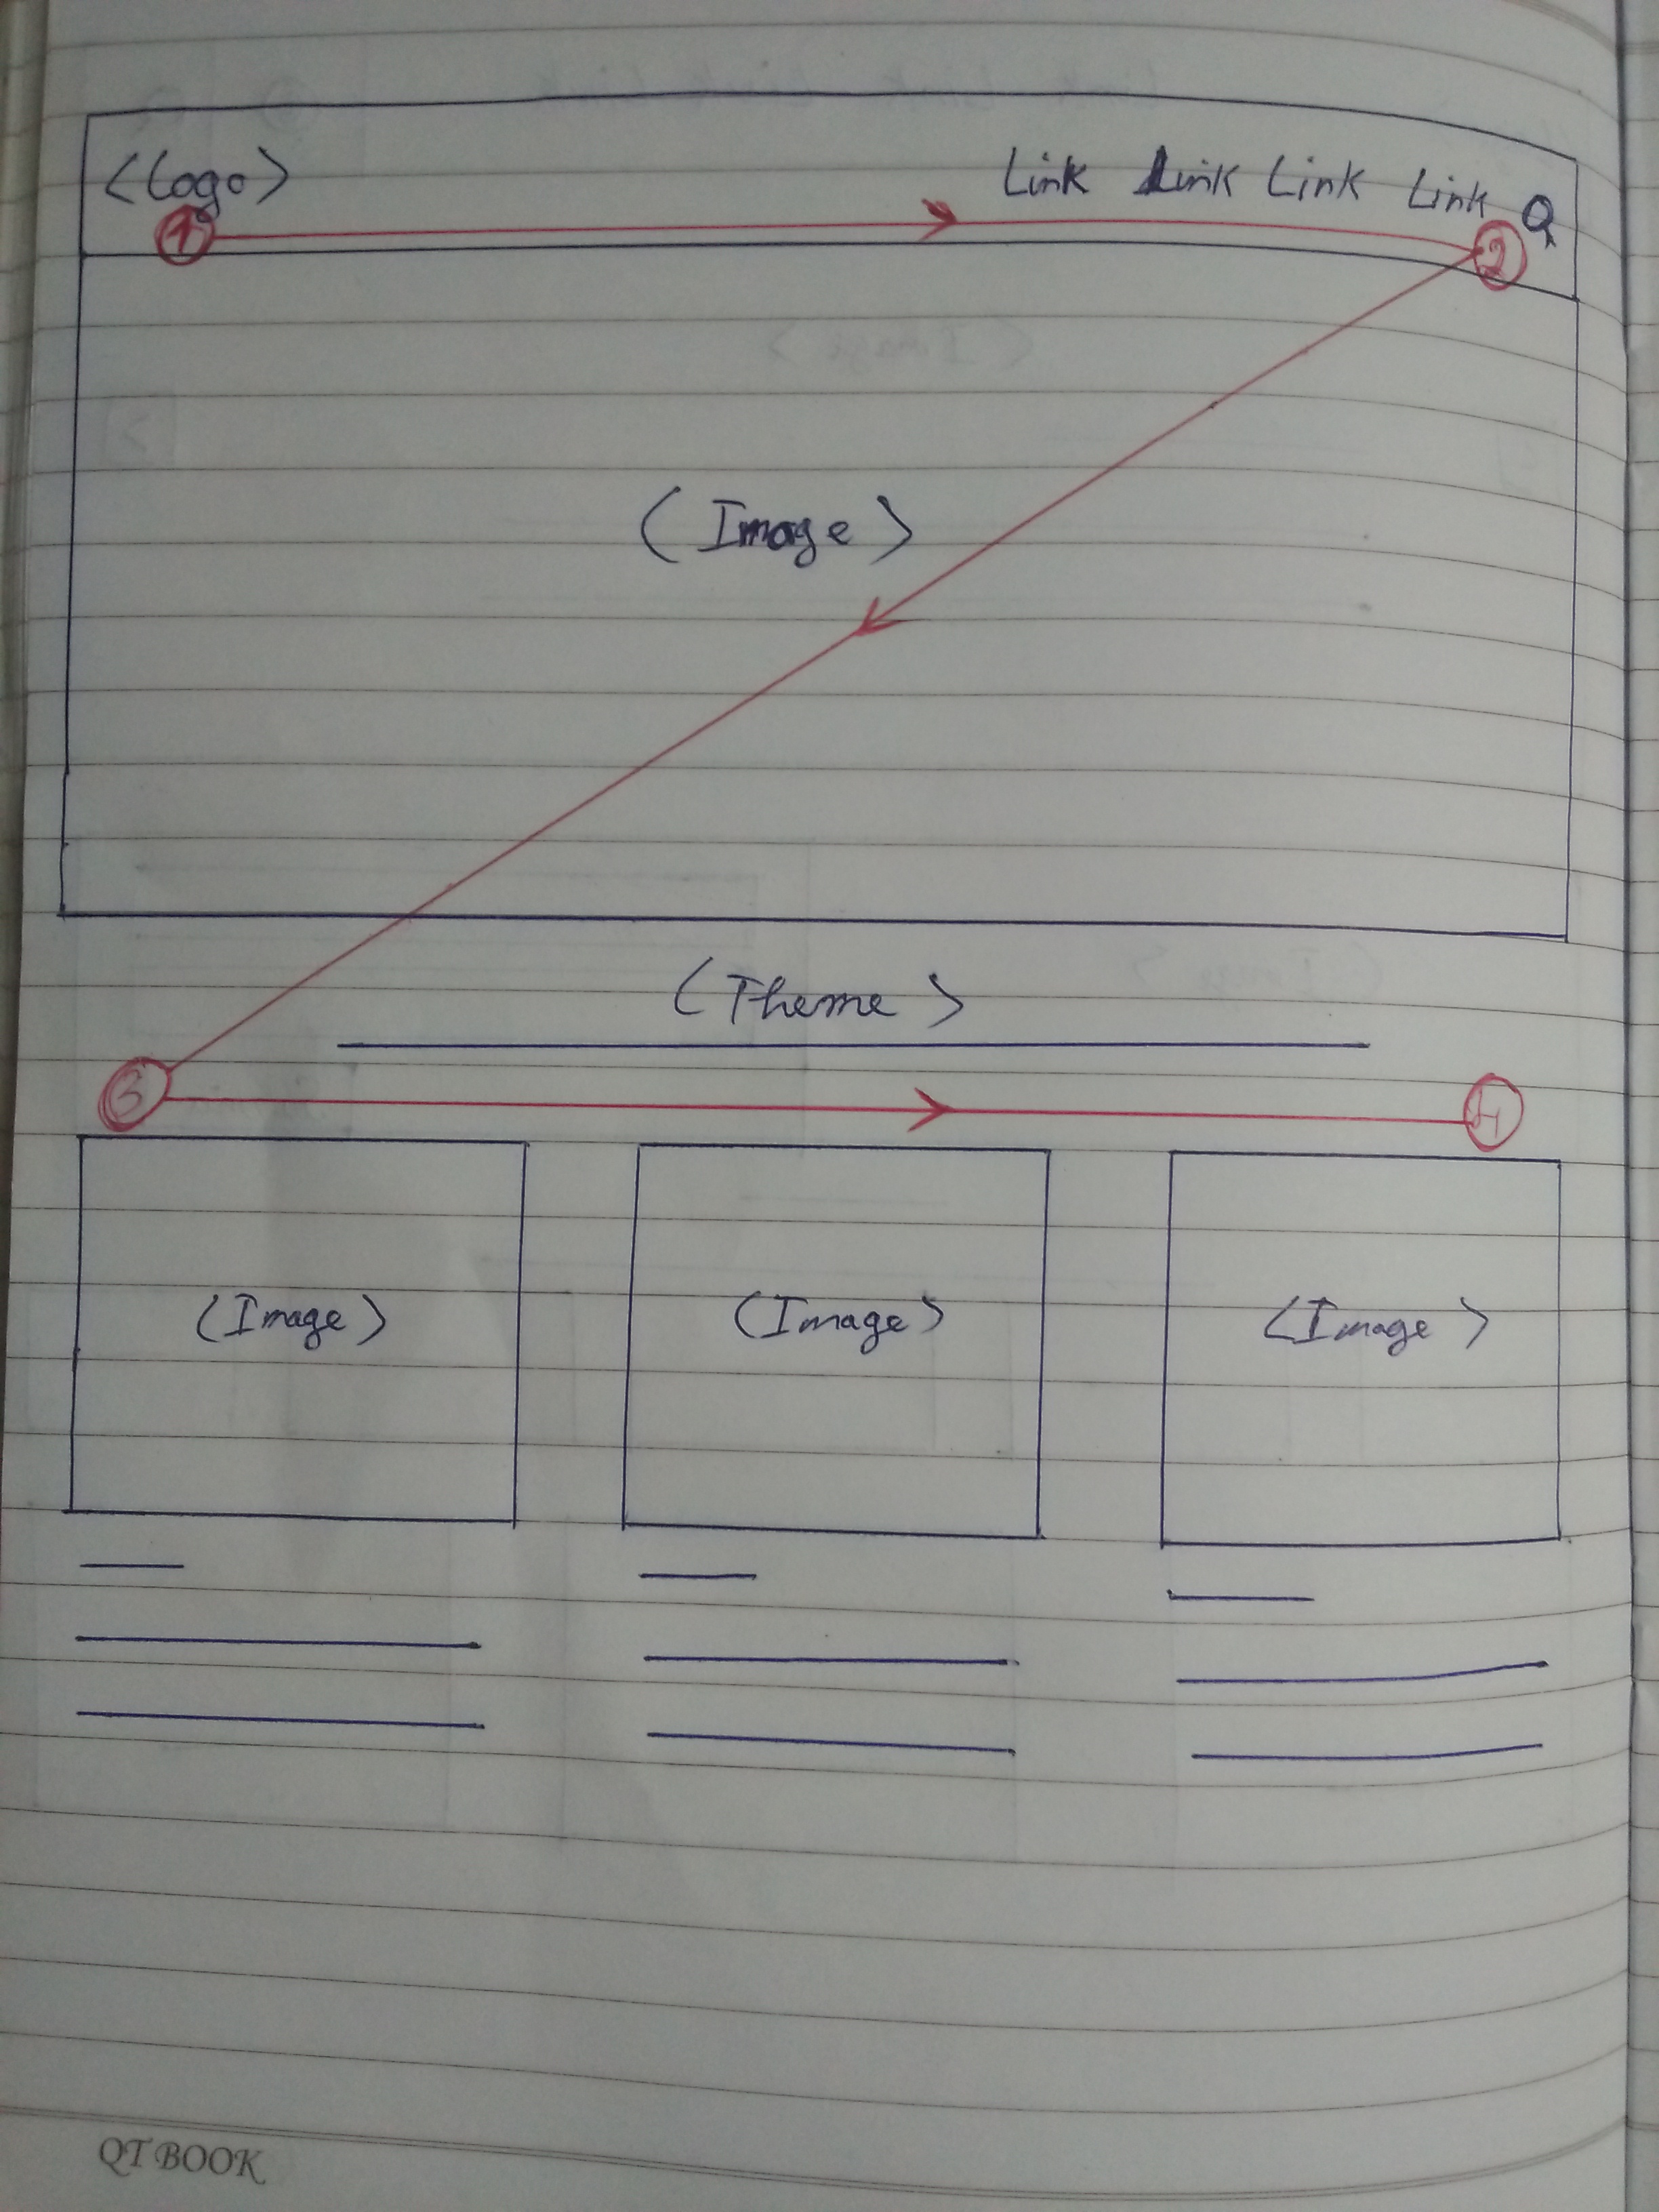 <Logo> Link Link Link Link
1 2
<Image>
<Theme>
3 4
<Image> <Image> <Image>
QT BOOK